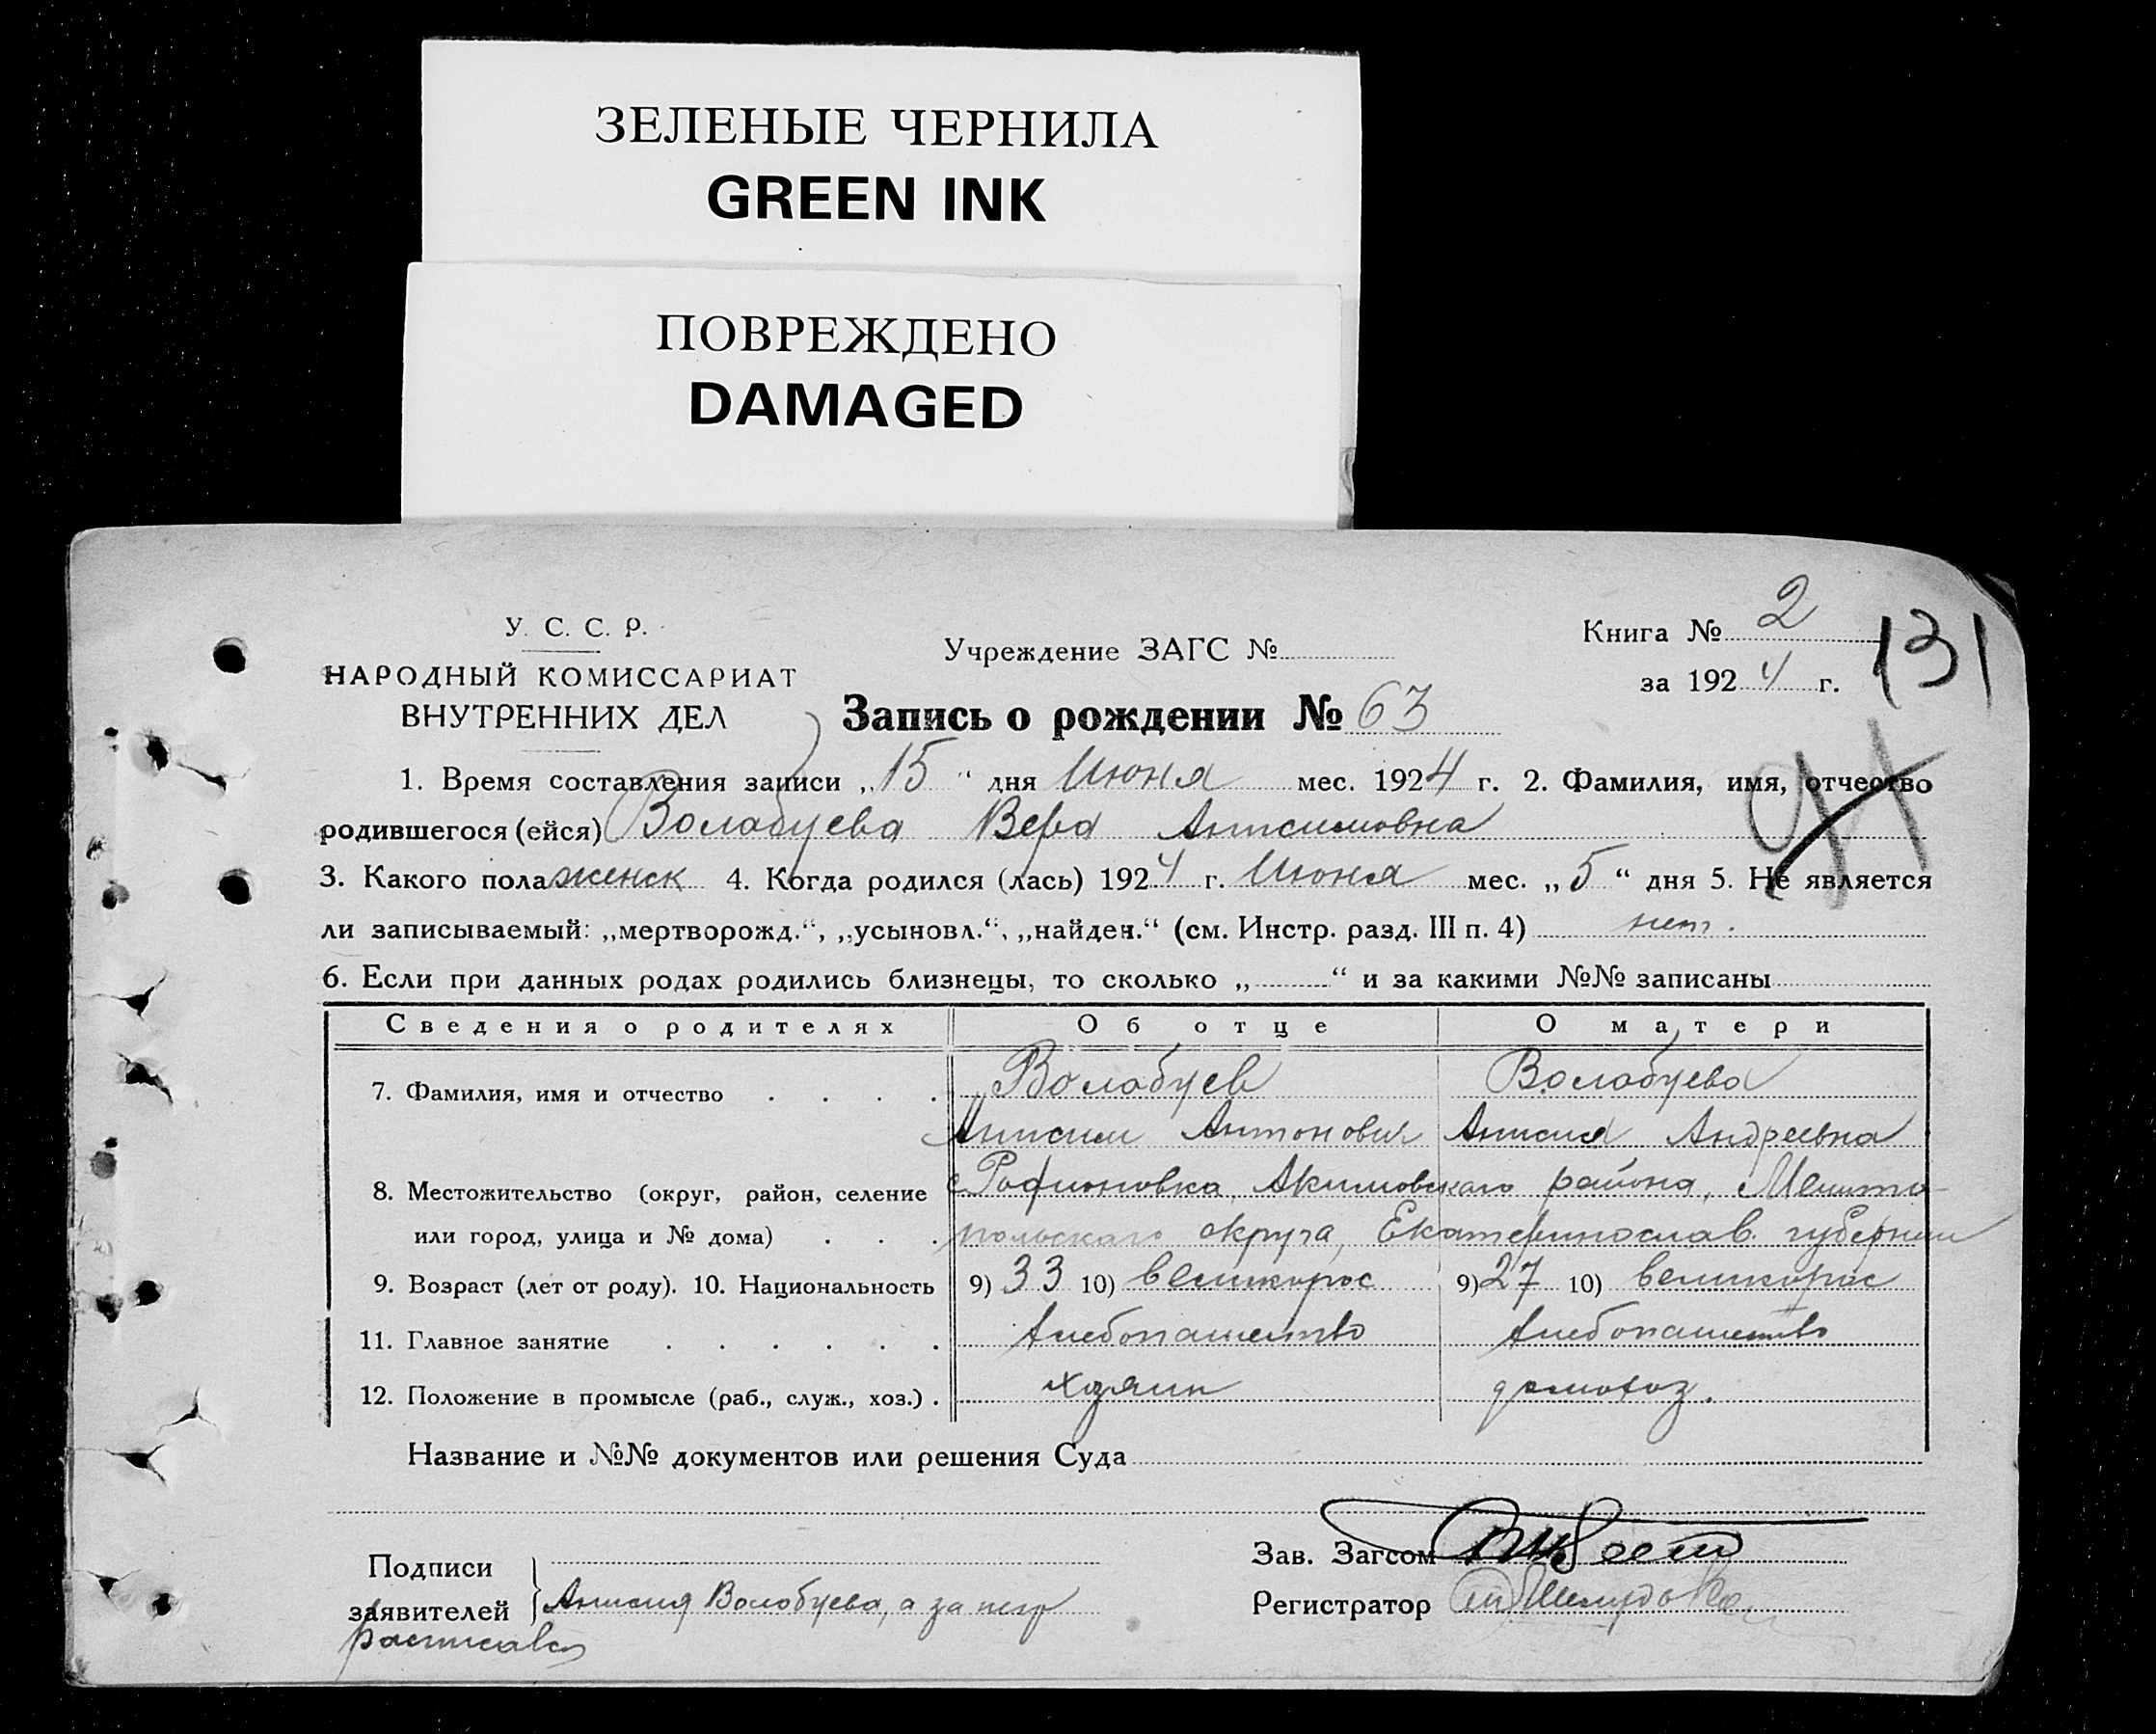 ЗЕЛЕНЫЕ ЧЕРНИЛА
GREEN INK
ПОВРЕЖДЕНО
DAMAGED
У. С. С. Р.
НАРОДНЫЙ КОМИССАРИАТ
ВНУТРЕННИХ ДЕЛ
Учреждение ЗАГС №
Книга № 2
за 1924 г.
131
Запись о рождении № 63
1. Время составления записи „15“ дня Июня мес. 1924 г. 2. Фамилия, имя, отчество
родившегося (ейся) Волобуева Вера Анисимовна
3. Какого пола женск 4. Когда родился (лась) 1924 г. Июня мес. „5“ дня 5. Не является
ли записываемый: „мертворожд.“, „усыновл.“, „найден.“ (см. Инстр. разд. III п. 4) нет.
6. Если при данных родах родились близнецы, то сколько „ “ и за какими №№ записаны
Сведения о родителях Об отце О матери
7. Фамилия, имя и отчество Волобуев Волобуева
Анисим Антонович Анисия Андреевна
8. Местожительство (округ, район, селение с Родионовка, Акимовскаго района, Мелито-
или город, улица и № дома) польскаго округа, Екатеринослав. губернии
9. Возраст (лет от роду). 10. Национальность 9) 33 10) великорос 9) 27 10) великорос
11. Главное занятие хлебопашество хлебопашество
12. Положение в промысле (раб., служ., хоз.) хозяин домохоз.
Название и №№ документов или решения Суда
Подписи
заявителей Анисия Волобуева, а за негр
расписався
Зав. Загсом
Регистратор